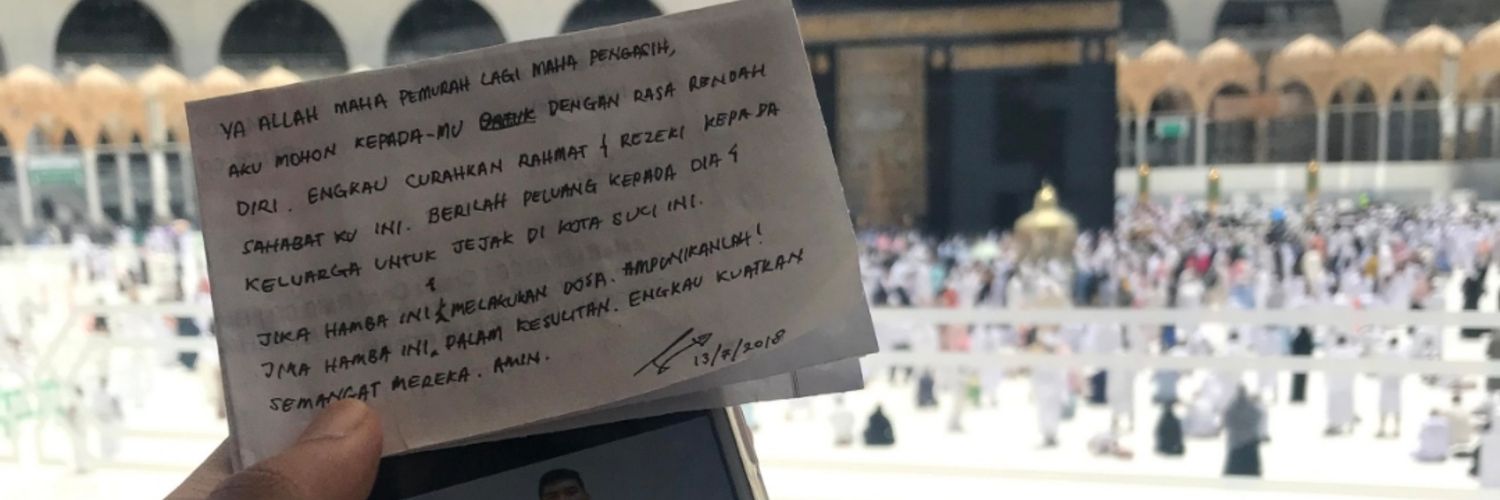 YA ALLAH MAHA PEMURAH LAGI MAHA PENGASIH,
AKU MOHON KEPADA-MU DENGAN RASA RENDAH
DIRI. ENGKAU CURAHKAN RAHMAT & REZEKI KEPADA
SAHABAT KU INI. BERILAH PELUANG KEPADA DIA &
KELUARGA UNTUK JEJAK DI KOTA SUCI INI.
JIKA HAMBA INI & MELAKUKAN DOSA. AMPUNIKANLAH!
JIKA HAMBA INI DALAM KESULITAN. ENGKAU KUATKAN
SEMANGAT MEREKA. AMIN.
13/7/2018